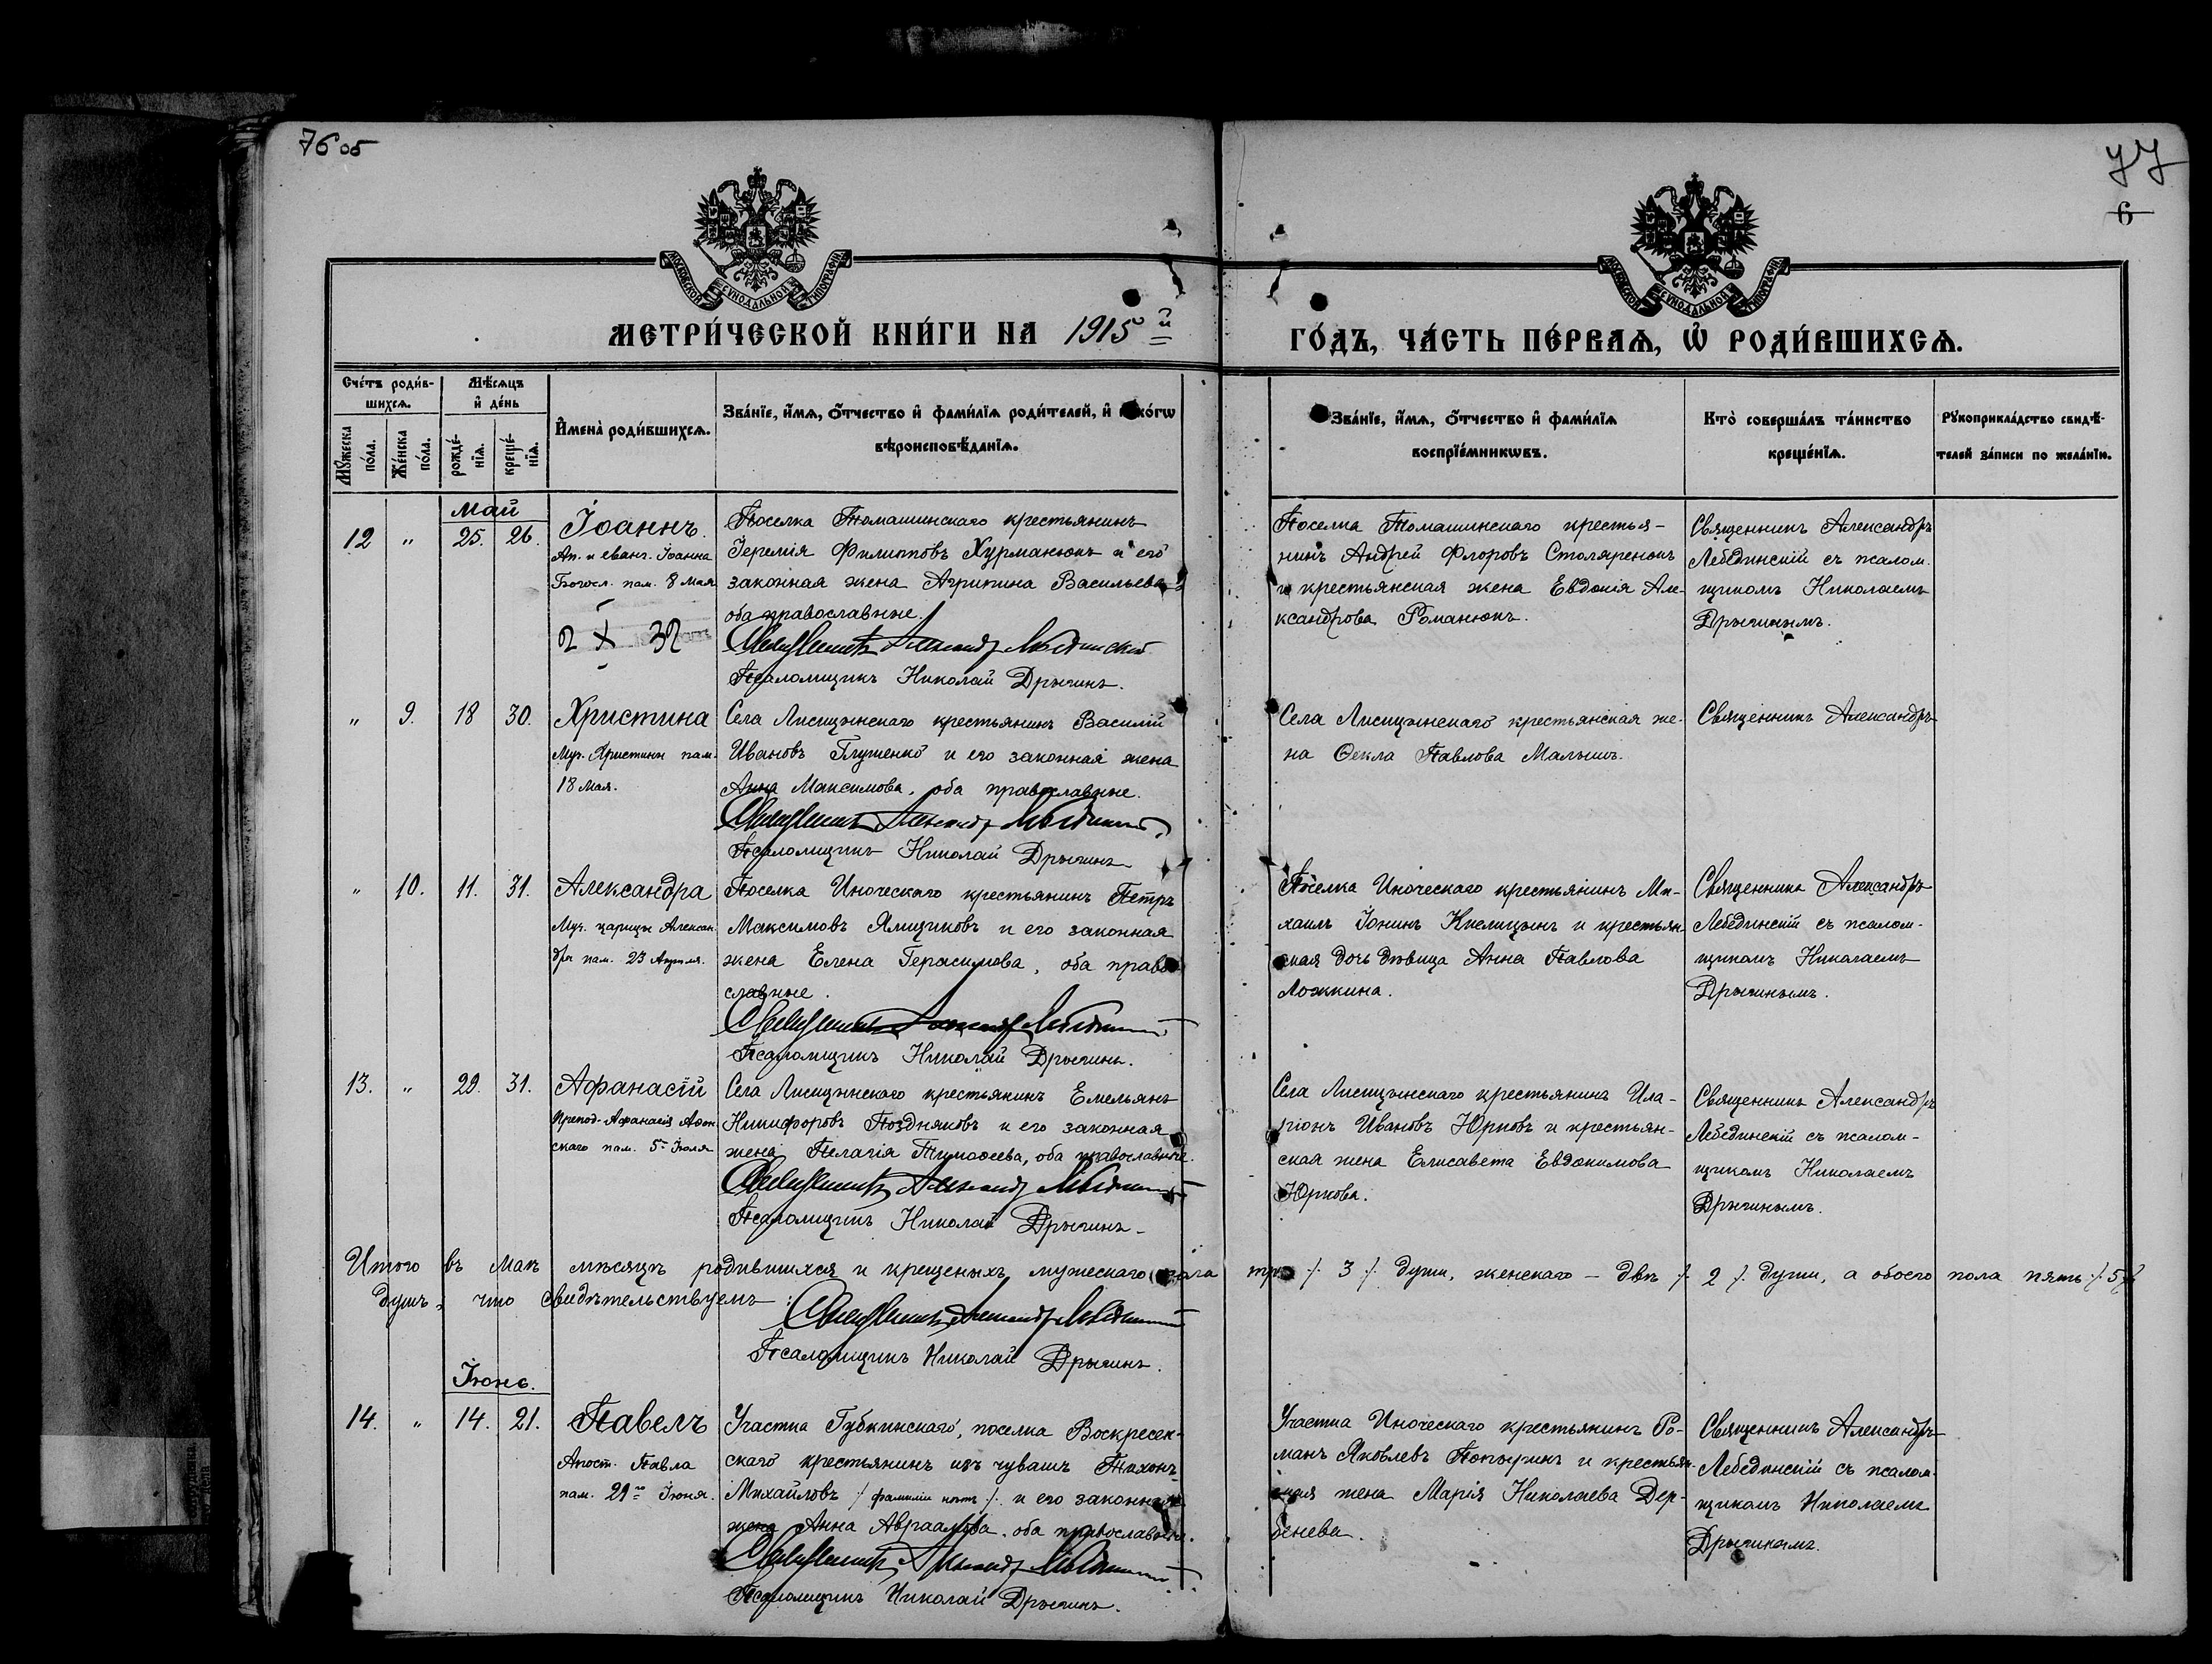 76 об
77
6
МОСКОВСКОЙ СѴНОДАЛЬНОЙ ТИПОГРАФІИ
МОСКОВСКОЙ СѴНОДАЛЬНОЙ ТИПОГРАФІИ
МЕТРИ́ЧЕСКОЙ КНИ́ГИ НА 1915 й
ГО́ДЪ, ЧА́СТЬ ПЕ́РВАѦ, Ѽ РОДИ́ВШИХСѦ.
Сче́тъ роди́в-
шихсѧ.
Мѣ́сѧцъ
и҆ де́нь
Мꙋ́жеска
по́ла.
Же́нска
по́ла.
рожде́-
нїѧ.
креще́-
нїѧ.
И҆мена̀ роди́вшихсѧ.
Зва́нїе, и҆́мѧ, ѻ҆́тчество и҆ фами́лїѧ роди́телей, и҆ како́гѡ
вѣроисповѣ́данїѧ.
Зва́нїе, и҆́мѧ, ѻ҆́тчество и҆ фами́лїѧ
воспрїе́мникѡвъ.
Кто̀ соверша́лъ та́инство
креще́нїѧ.
Рꙋкоприкла́дство свидѣ́-
телей за́писи по жела́нїю.
Май
12 " 25. 26. Іоаннъ.
Ап. и еванг. Іоанна
Богосл. пам. 8 Мая
2 X 32
Поселка Томашинскаго крестьянинъ
Іеремія Филипповъ Хурманюкъ и его
законная жена Агрипина Васильева
оба православные.
Священникъ Александр Лебединскій
Псаломщикъ Николай Дрыгинъ.
Поселка Томашинскаго крестья-
нинъ Андрей Флоровъ Столяренокъ
и крестьянская жена Евдокія Але-
ксандрова Романюкъ.
Священникъ Александръ
Лебединскій съ псалом.
щикомъ Николаемъ
Дрыгинымъ.
" 9. 18 30. Христина
Муч. Христины пам.
18 Мая.
Села Лисицынскаго крестьянинъ Василій
Ивановъ Глушенко и его законная жена
Анна Максимова, оба православные.
Священникъ Александр Лебединскій
Псаломщикъ Николай Дрыгинъ
Села Лисицынскаго крестьянская же-
на Ѳекла Павлова Малышъ.
Священникъ Александръ
" 10. 11. 31. Александра
Муч. царицы Алексан.
дры пам. 23 Апреля.
Поселка Иноческаго крестьянинъ Петръ
Максимовъ Ямщиковъ и его законная
жена Елена Герасимова, оба право
славные.
Священникъ Александр Лебединскій
Псаломщикъ Николай Дрыгинъ.
Поселка Иноческаго крестьянинъ Ми-
хаилъ Іонинъ и крестьян
ская дочь дѣвица Анна Павлова
Ложкина.
Священникъ Александръ
Лебединскій съ псалом-
щикомъ Николаемъ
Дрыгинымъ.
13. " 29. 31. Афанасій
Препод. Афанасія Афон
скаго пам. 5 Іюля
Села Лисицынскаго крестьянинъ Емельянъ
Никифоровъ Поздняковъ и его законная
жена Пелагія Тимоѳеева, оба православные.
Священникъ Александр Лебединскій
Псаломщикъ Николай Дрыгинъ
Села Лисицынскаго крестьянинъ Ила-
ріонъ Ивановъ Юрковъ и крестьян-
ская жена Елисавета Евдокимова
Юркова.
Священникъ Александръ
Лебединскій съ псалом-
щикомъ Николаемъ
Дрыгинымъ.
Итого въ Маѣ мѣсяцѣ родившихся и крещеныхъ мужескаго пола три ⁒ 3 ⁒ души, женскаго – двѣ ⁒ 2 ⁒ души, а обоего пола пять ⁒ 5 ⁒
душъ, что свидѣтельствуемъ:
Священникъ Александр Лебединскій
Псаломщикъ Николай Дрыгинъ.
Іюнь.
14. " 14. 21. Павелъ
Апост. Павла
пам. 29 го Іюня.
Участка Губкинскаго, поселка Воскресен-
скаго крестьянинъ изъ чувашъ Тихонъ
Михайловъ ⁒ фамиліи нѣтъ ⁒ и его законная
жена Анна Авраамова, оба православные.
Священникъ Александр Лебединскій
Псаломщикъ Николай Дрыгинъ.
Участка Иноческаго крестьянинъ Ро-
манъ Яковлевъ и крестьян-
ская жена Марія Николаева Дер-
бенева.
Священникъ Александръ
Лебединскій съ псалом-
щикомъ Николаемъ
Дрыгинымъ.